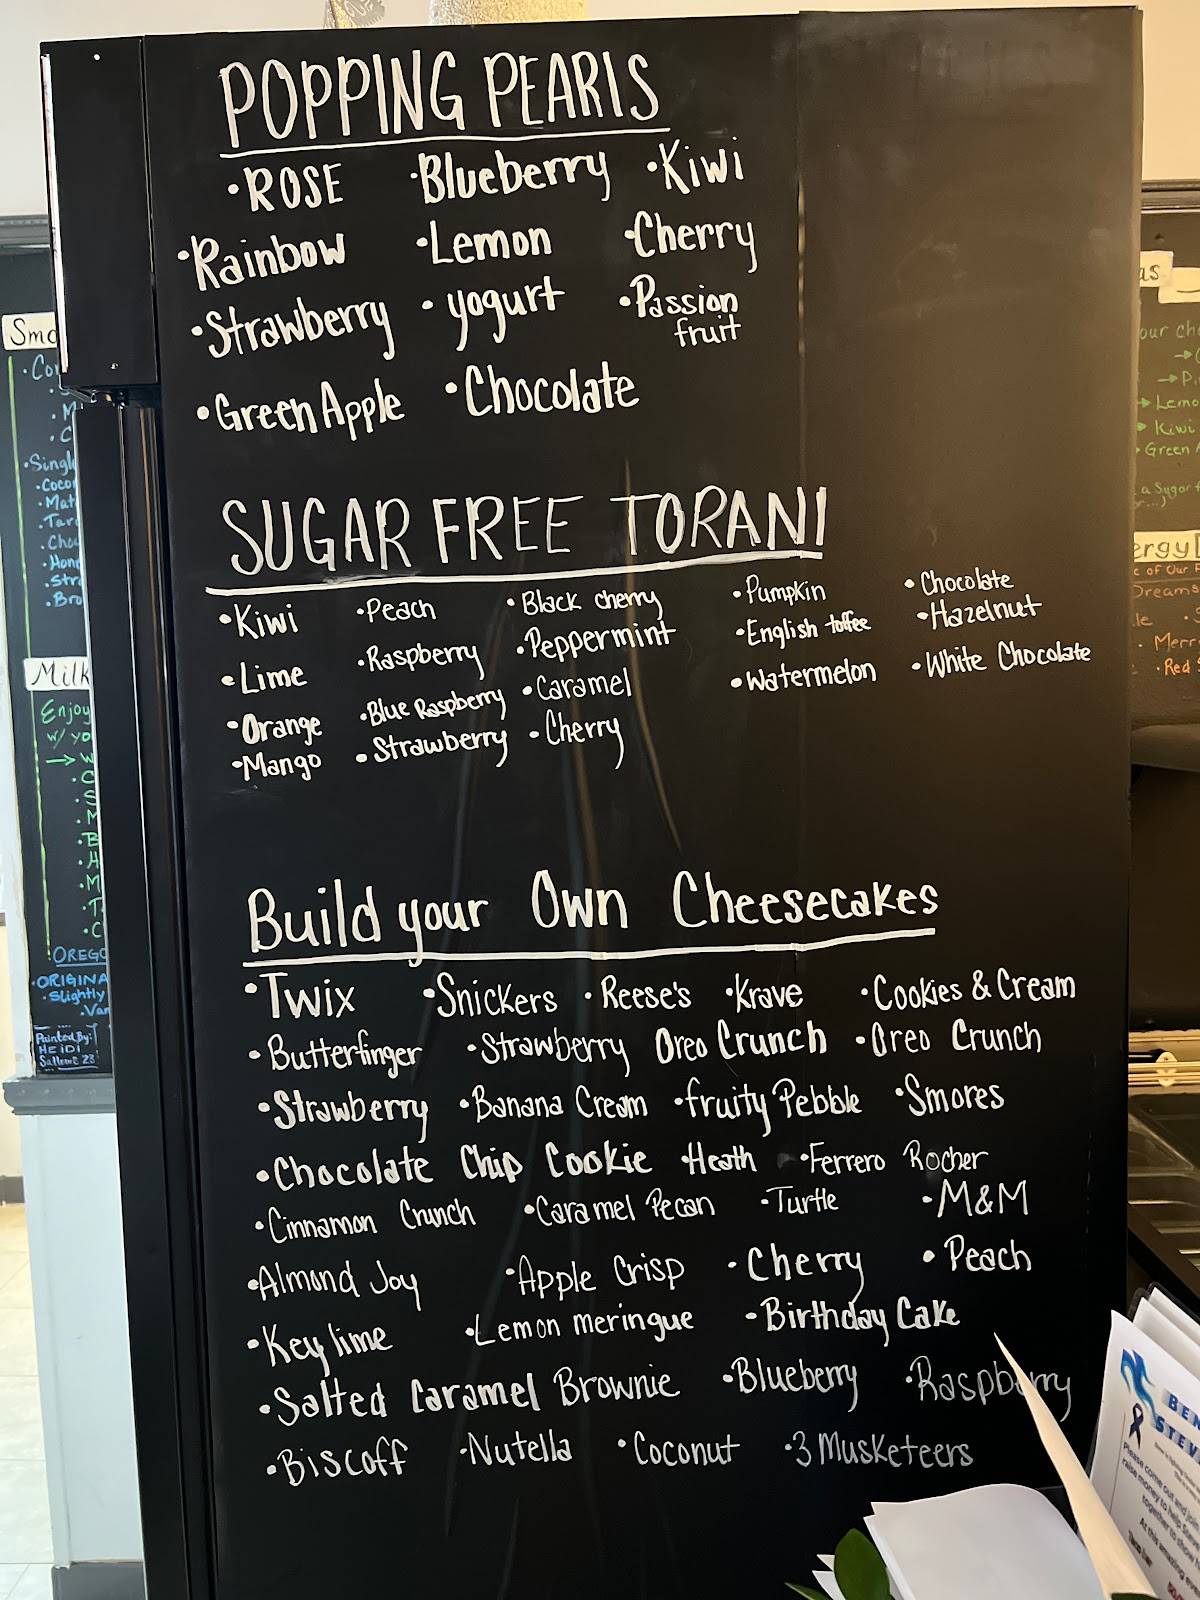 POPPING PEARLS
•ROSE •Blueberry •Kiwi
•Rainbow •Lemon •Cherry
•Strawberry •yogurt •Passion fruit
•Green Apple •Chocolate
SUGAR FREE TORANI
•Kiwi •Peach •Black cherry •Pumpkin •Chocolate
•Lime •Raspberry •Peppermint •English toffee •Hazelnut
•Orange •Blue Raspberry •Caramel •Watermelon •White Chocolate
•Mango •Strawberry •Cherry
Build your Own Cheesecakes
•Twix •Snickers •Reese's •Krave •Cookies & Cream
•Butterfinger •Strawberry Oreo Crunch •Oreo Crunch
•Strawberry •Banana Cream •fruity Pebble •Smores
•Chocolate Chip Cookie •Heath •Ferrero Rocher
•Cinnamon Crunch •Caramel Pecan •Turtle •M&M
•Almond Joy •Apple Crisp •Cherry •Peach
•Key lime •Lemon meringue •Birthday Cake
•Salted Caramel Brownie •Blueberry •Raspberry
•Biscoff •Nutella •Coconut •3 Musketeers
•Singl
Milk
Enjoy
w/ yo
OREGO
•ORIGINA
•Slightly
Painted By:
HEIDI
→Lemo
Kiwi
Green
Dreams
•Red
Please come out and
raise money to help
together to show
At this amazing